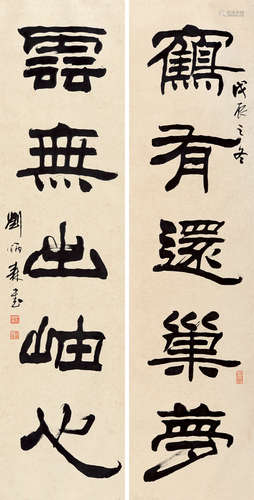 鶴有還巢夢
戊辰之冬
雲無出岫心
劉炳森書